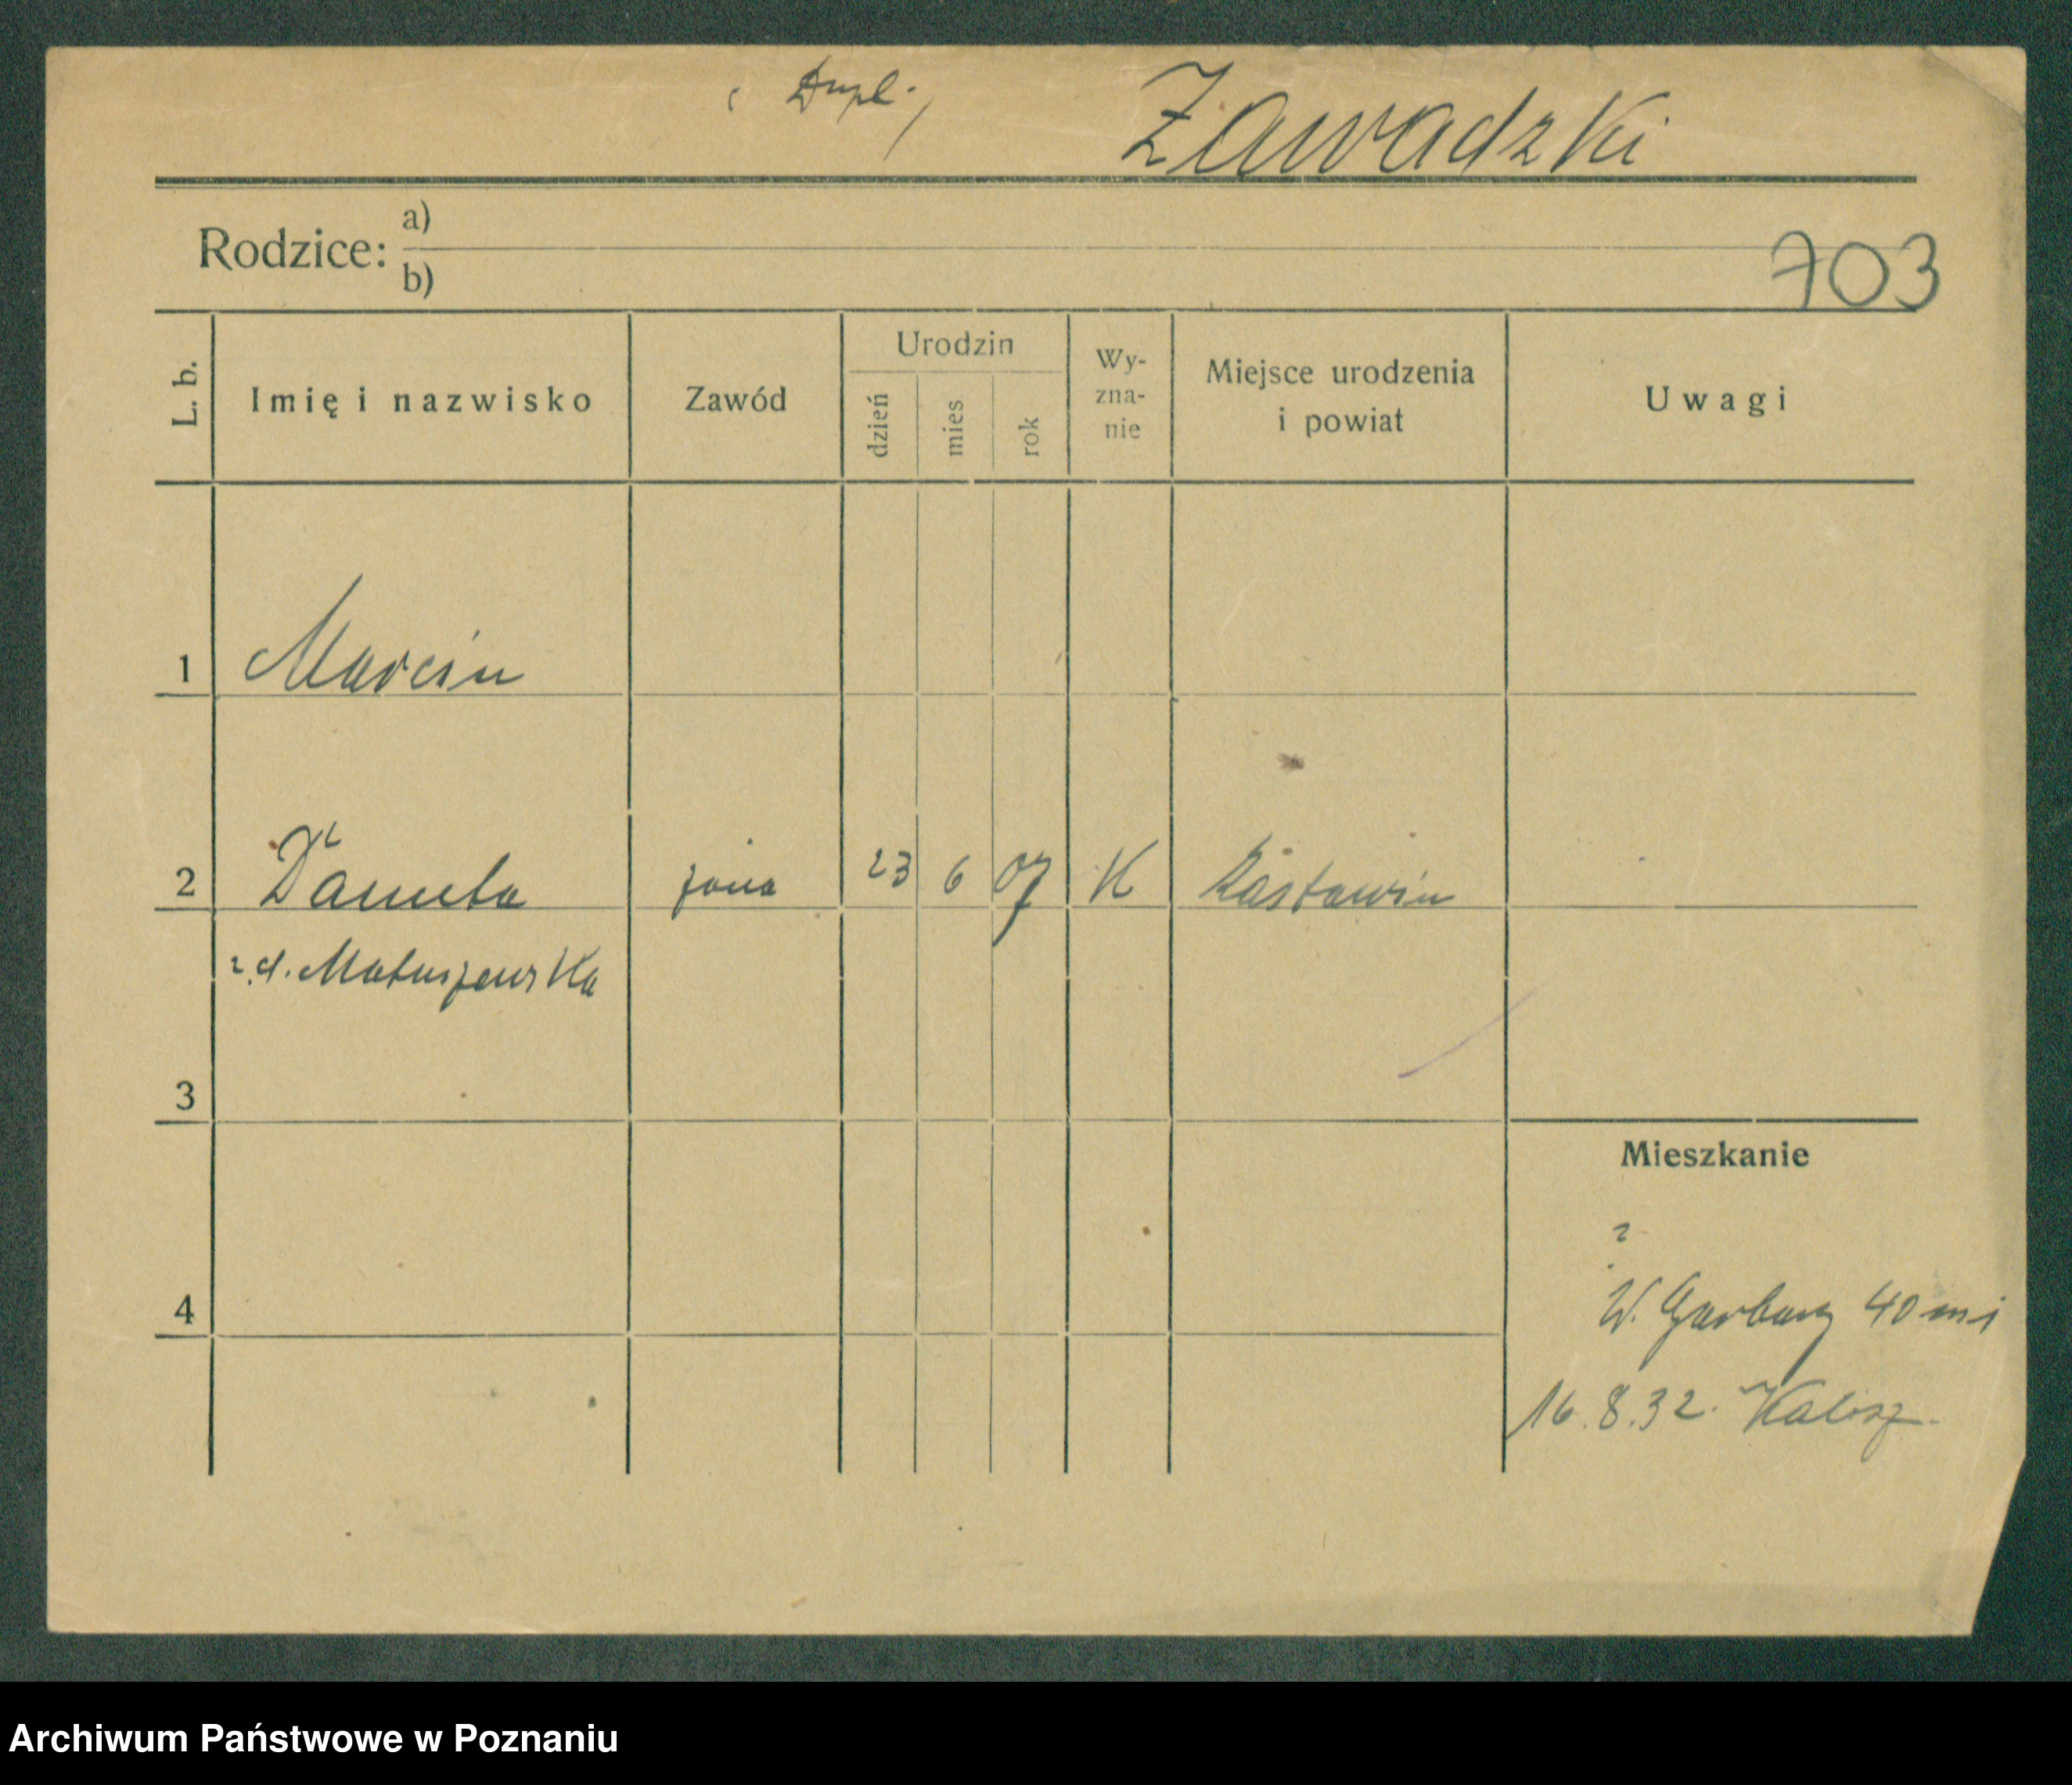 ( Dupl. )
Zawadzki
Rodzice: a)
b)
703
L. b. Imię i nazwisko Zawód Urodzin dzień mies rok Wy-zna-nie Miejsce urodzenia i powiat Uwagi
1 Marcin
2 Daniela żona 23 6 07 K
z.d. Matuszewska
3
Mieszkanie
?
W. Garbary 40 m
4
16.8.32. Kalisz.
Archiwum Państwowe w Poznaniu